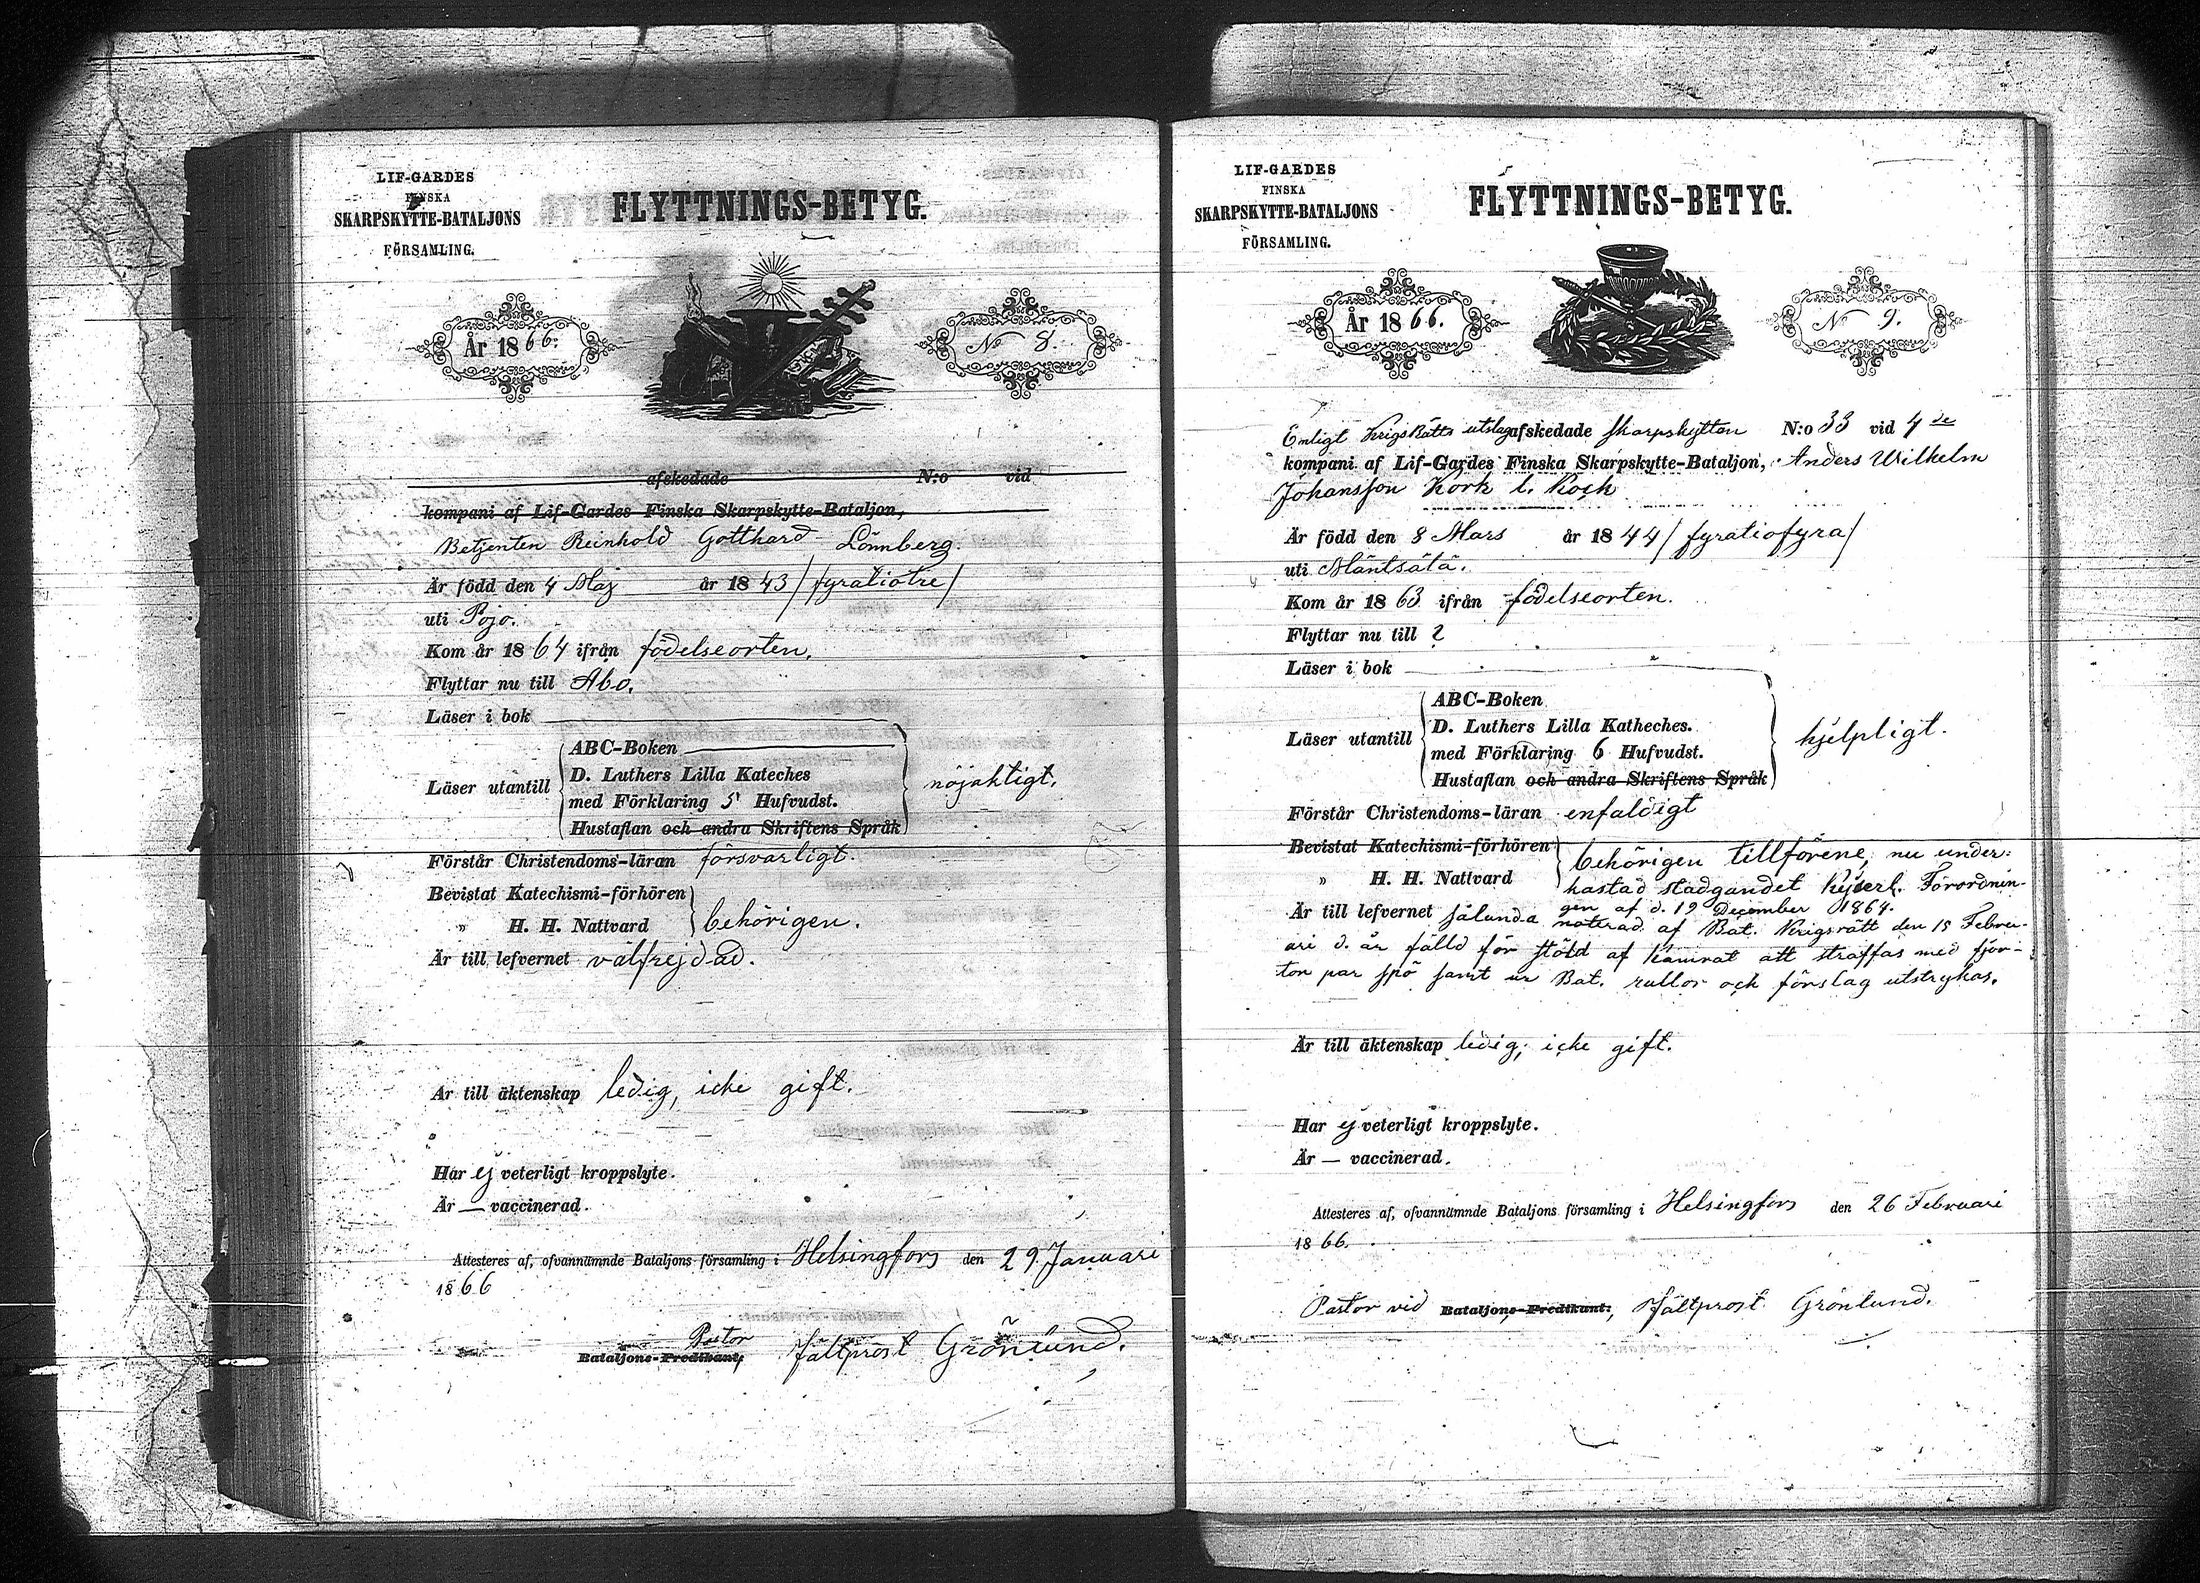 LIF-GARDES
FINSKA
SKARPSKYTTE-BATALJONS
FÖRSAMLING.
FLYTTNINGS-BETYG.
År 1866.
No 8.
afskedade N:o vid
kompani af Lif-Gardes Finska Skarpskytte-Bataljon,
Betjenten Reinhold Gotthard Lönnberg.
Är född den 4 Maj år 1843 / fyratiotre /
uti Pojo.
Kom år 1864 ifrån födelseorten.
Flyttar nu till Åbo.
Läser i bok
ABC-Boken
D. Luthers Lilla Kateches
Läser utantill
nöjaktigt.
med Förklaring 5 Hufvudst.
Hustaflan och andra Skriftens Språk
Förstår Christendoms-läran försvarligt.
Bevistat Katechismi-förhören
„ H. H. Nattvard behörigen.
Är till lefvernet välfrejdad.
Är till äktenskap ledig, icke gift.
Har ej veterligt kroppslyte.
Är — vaccinerad.
Attesteres af, ofvannämnde Bataljons församling i Helsingfors den 29 Januari
1866
Pastor
Bataljons-Predikant, Fältprost Grönlund.
LIF-GARDES
FINSKA
SKARPSKYTTE-BATALJONS
FÖRSAMLING.
FLYTTNINGS-BETYG.
År 1866.
No 9.
Enligt KrigsRätts utslag afskedade Skarpskytten N:o 33 vid 4de
kompani af Lif-Gardes Finska Skarpskytte-Bataljon, Anders Wilhelm
Johansson Kork l. Koch
Är född den 8 Mars år 1844 / fyratiofyra /
uti Mäntsälä.
Kom år 1863 ifrån födelseorten.
Flyttar nu till ?
Läser i bok
ABC-Boken
D. Luthers Lilla Katheches.
Läser utantill
hjelpligt.
med Förklaring 6 Hufvudst.
Hustaflan och andra Skriftens Språk
Förstår Christendoms-läran enfaldigt
Bevistat Katechismi-förhören behörigen tillförene, nu under:
„ H. H. Nattvard kastad stadgandet Kejserl. Förordnin-
gen af d. 19 December 1864.
Är till lefvernet sålunda noterad af Bat. Krigsrätt den 15 Febru-
ari d. år fälld för stöld af Kamrat att straffas med fjor-
ton par spö samt ur Bat. rullor och förslag utstrykas.
Är till äktenskap ledig, icke gift.
Har ej veterligt kroppslyte.
Är — vaccinerad.
Attesteres af, ofvannämnde Bataljons församling i Helsingfors den 26 Februari
1866.
Pastor vid Bataljons-Predikant, Fältprost Grönlund.